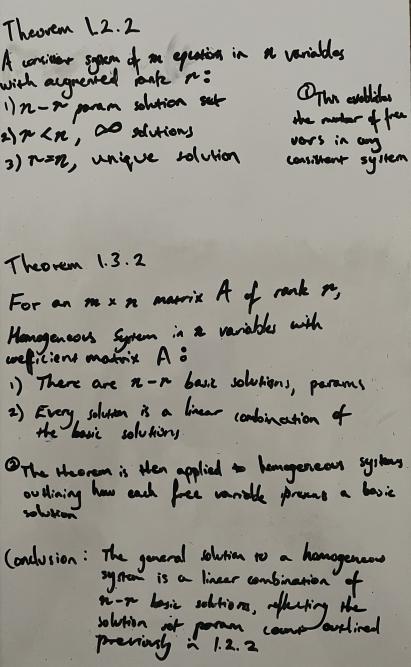 Theorem 1.2.2
A consistent system of m equations in n variables
with augmented rank r:
1) n-r param solution set
2) r<n, ∞ solutions
3) r=n, unique solution
① This establishes
the number of free
vars in any
consistent system
Theorem 1.3.2
For an m x n matrix A of rank r,
Homogeneous System in n variables with
coefficient matrix A:
1) There are n-r basic solutions, params
2) Every solution is a linear combination of
the basic solutions
② The theorem is then applied to homogeneous systems
outlining how each free variable a basic
solution
Conclusion: The general solution to a homogeneous
system is a linear combination of
n-r basic solutions, reflecting the
solution set param count outlined
previously in 1.2.2